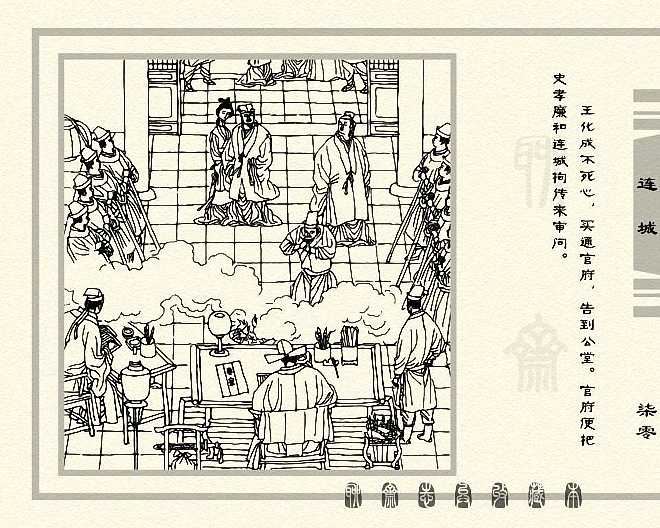 王化成不死心，买通官府，告到公堂。官府便把
史孝廉和连城拘传来审问。
连城
柒零
聊斋志异收藏本